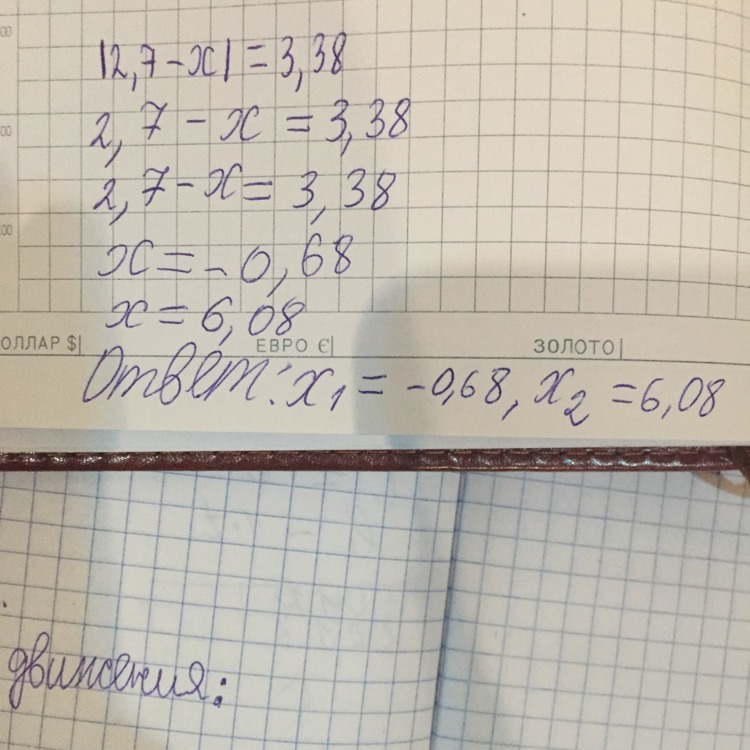 |2,7-x|=3,38
2,7-x=3,38
2,7-x=3,38
x=-0,68
x=6,08
ОЛЛАР $| ЕВРО €| ЗОЛОТО|
Ответ: x₁=-0,68, x₂=6,08
движения: